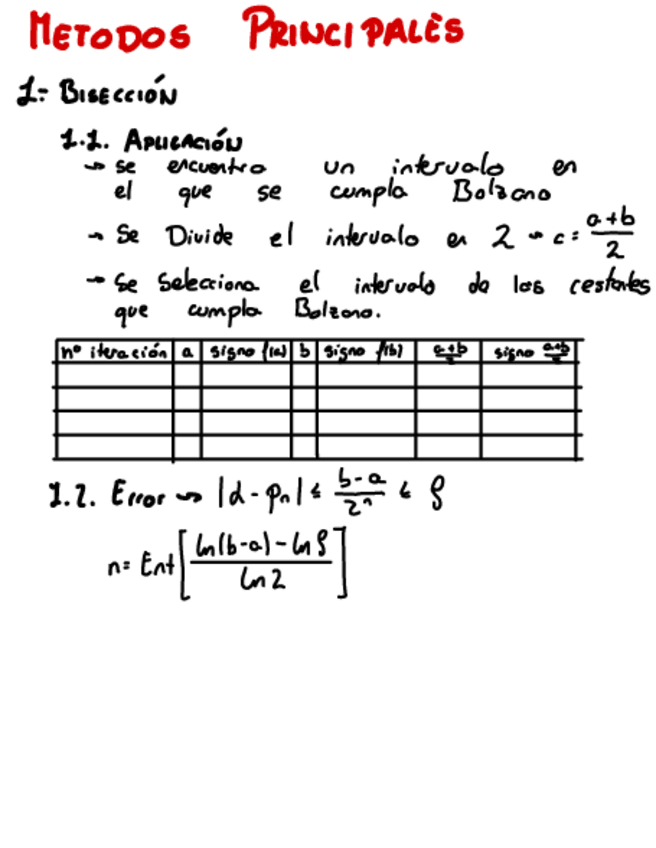 METODOS PRINCIPALES
1.- BISECCIÓN
1.1. APLICACIÓN
→ se encuentra un intervalo en
el que se cumpla Bolzano
→ Se Divide el intervalo en 2 → c = a+b/2
→ Se selecciona el intervalo de los restantes
que cumpla Bolzano.
nº iteración a signo f(a) b signo f(b) a+b/2 signo a+b/2
1.2. Error → |α - pₙ| ≤ b-a/2ⁿ ≤ ρ
n = Ent[ln(b-a) - ln ρ/ln 2]